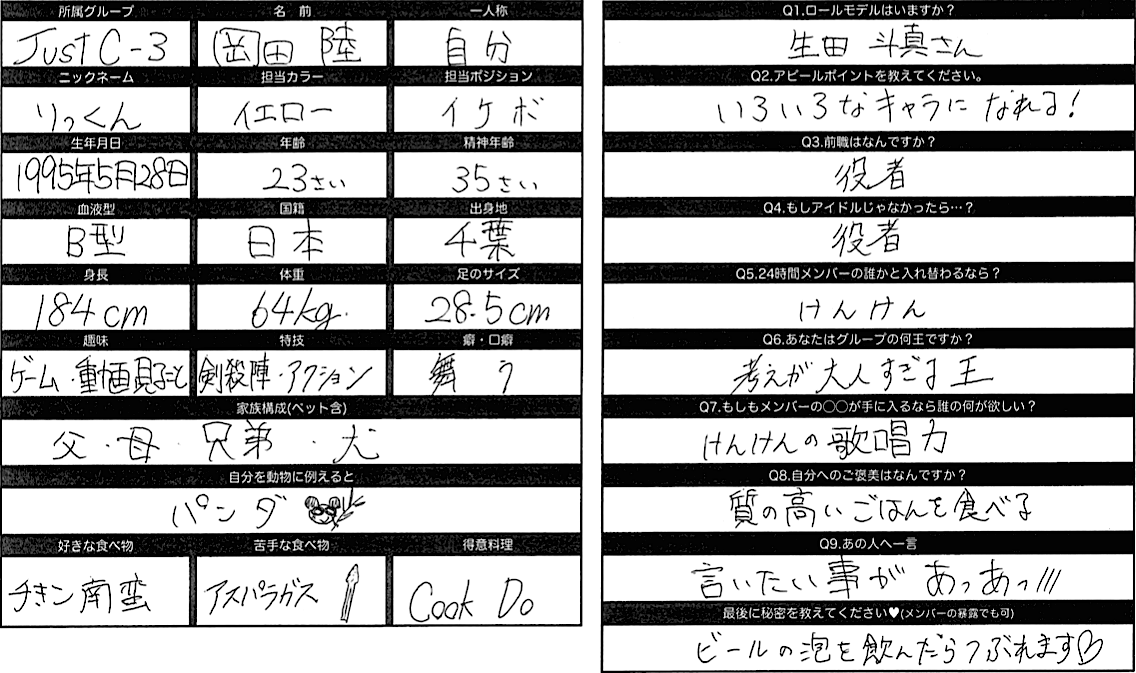 所属グループ 名前 一人称
JUST C-3 岡田 陸 自分
ニックネーム 担当カラー 担当ポジション
りっくん イエロー イケボ
生年月日 年齢 精神年齢
1995年5月28日 23さい 35さい
血液型 国籍 出身地
B型 日本 千葉
身長 体重 足のサイズ
184cm 64kg. 28.5cm
趣味 特技 癖・口癖
ゲーム・動画見ること 剣殺陣・アクション 舞う
家族構成(ペット含)
父・母・兄弟・犬
自分を動物に例えると
パンダ
好きな食べ物 苦手な食べ物 得意料理
チキン南蛮 アスパラガス Cook Do
Q1.ロールモデルはいますか？
生田 斗真さん
Q2.アピールポイントを教えてください。
いろいろなキャラになれる!
Q3.前職はなんですか？
役者
Q4.もしアイドルじゃなかったら…？
役者
Q5.24時間メンバーの誰かと入れ替わるなら？
けんけん
Q6.あなたはグループの何王ですか？
考えが大人すぎる王
Q7.もしもメンバーの〇〇が手に入るなら誰の何が欲しい？
けんけんの歌唱力
Q8.自分へのご褒美はなんですか？
質の高いごはんを食べる
Q9.あの人へ一言
言いたい事が あっあっ///
最後に秘密を教えてください♥(メンバーの暴露でも可)
ビールの泡を飲んだらつぶれます♡